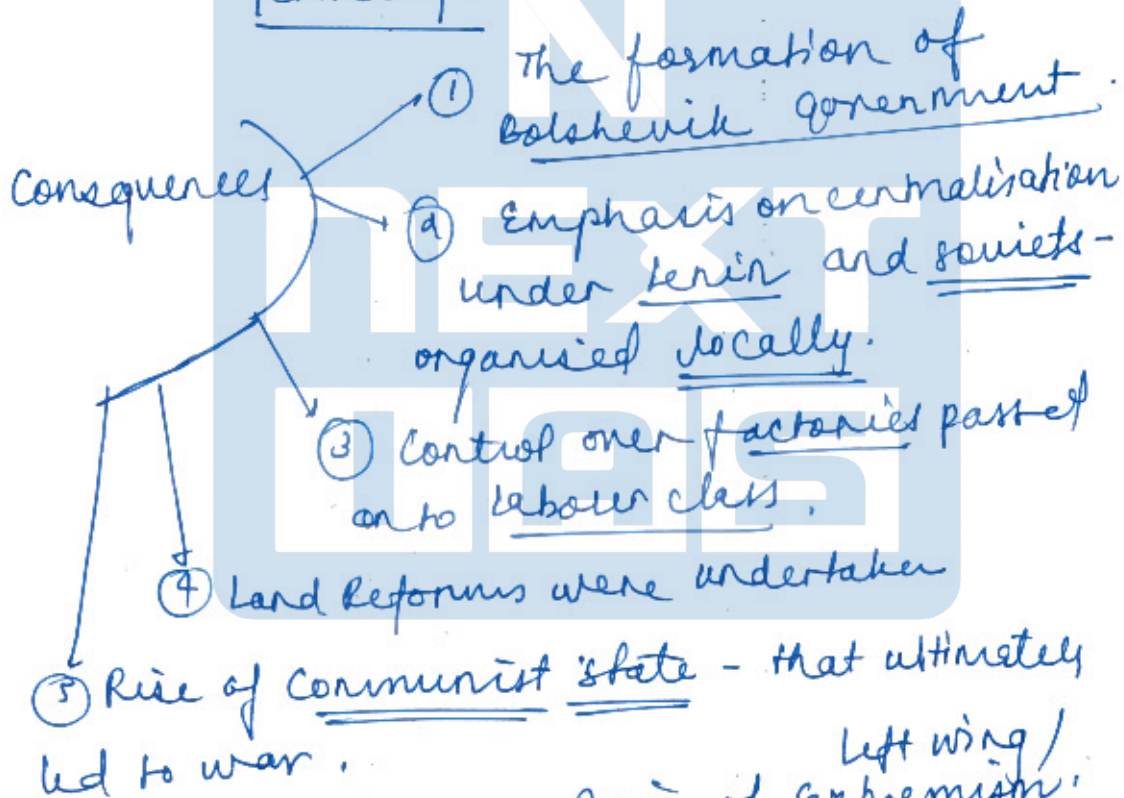 ① The formation of
Bolshevik government.
Consquences
② Emphasis on centralisation
under Lenin and soviets-
organised locally.
③ Control over factories passed
onto labour class.
④ Land Reforms were undertaken
⑤ Rise of Communist state - that ultimately
led to war.
Left wing/
of extremism.
NEXT
IAS